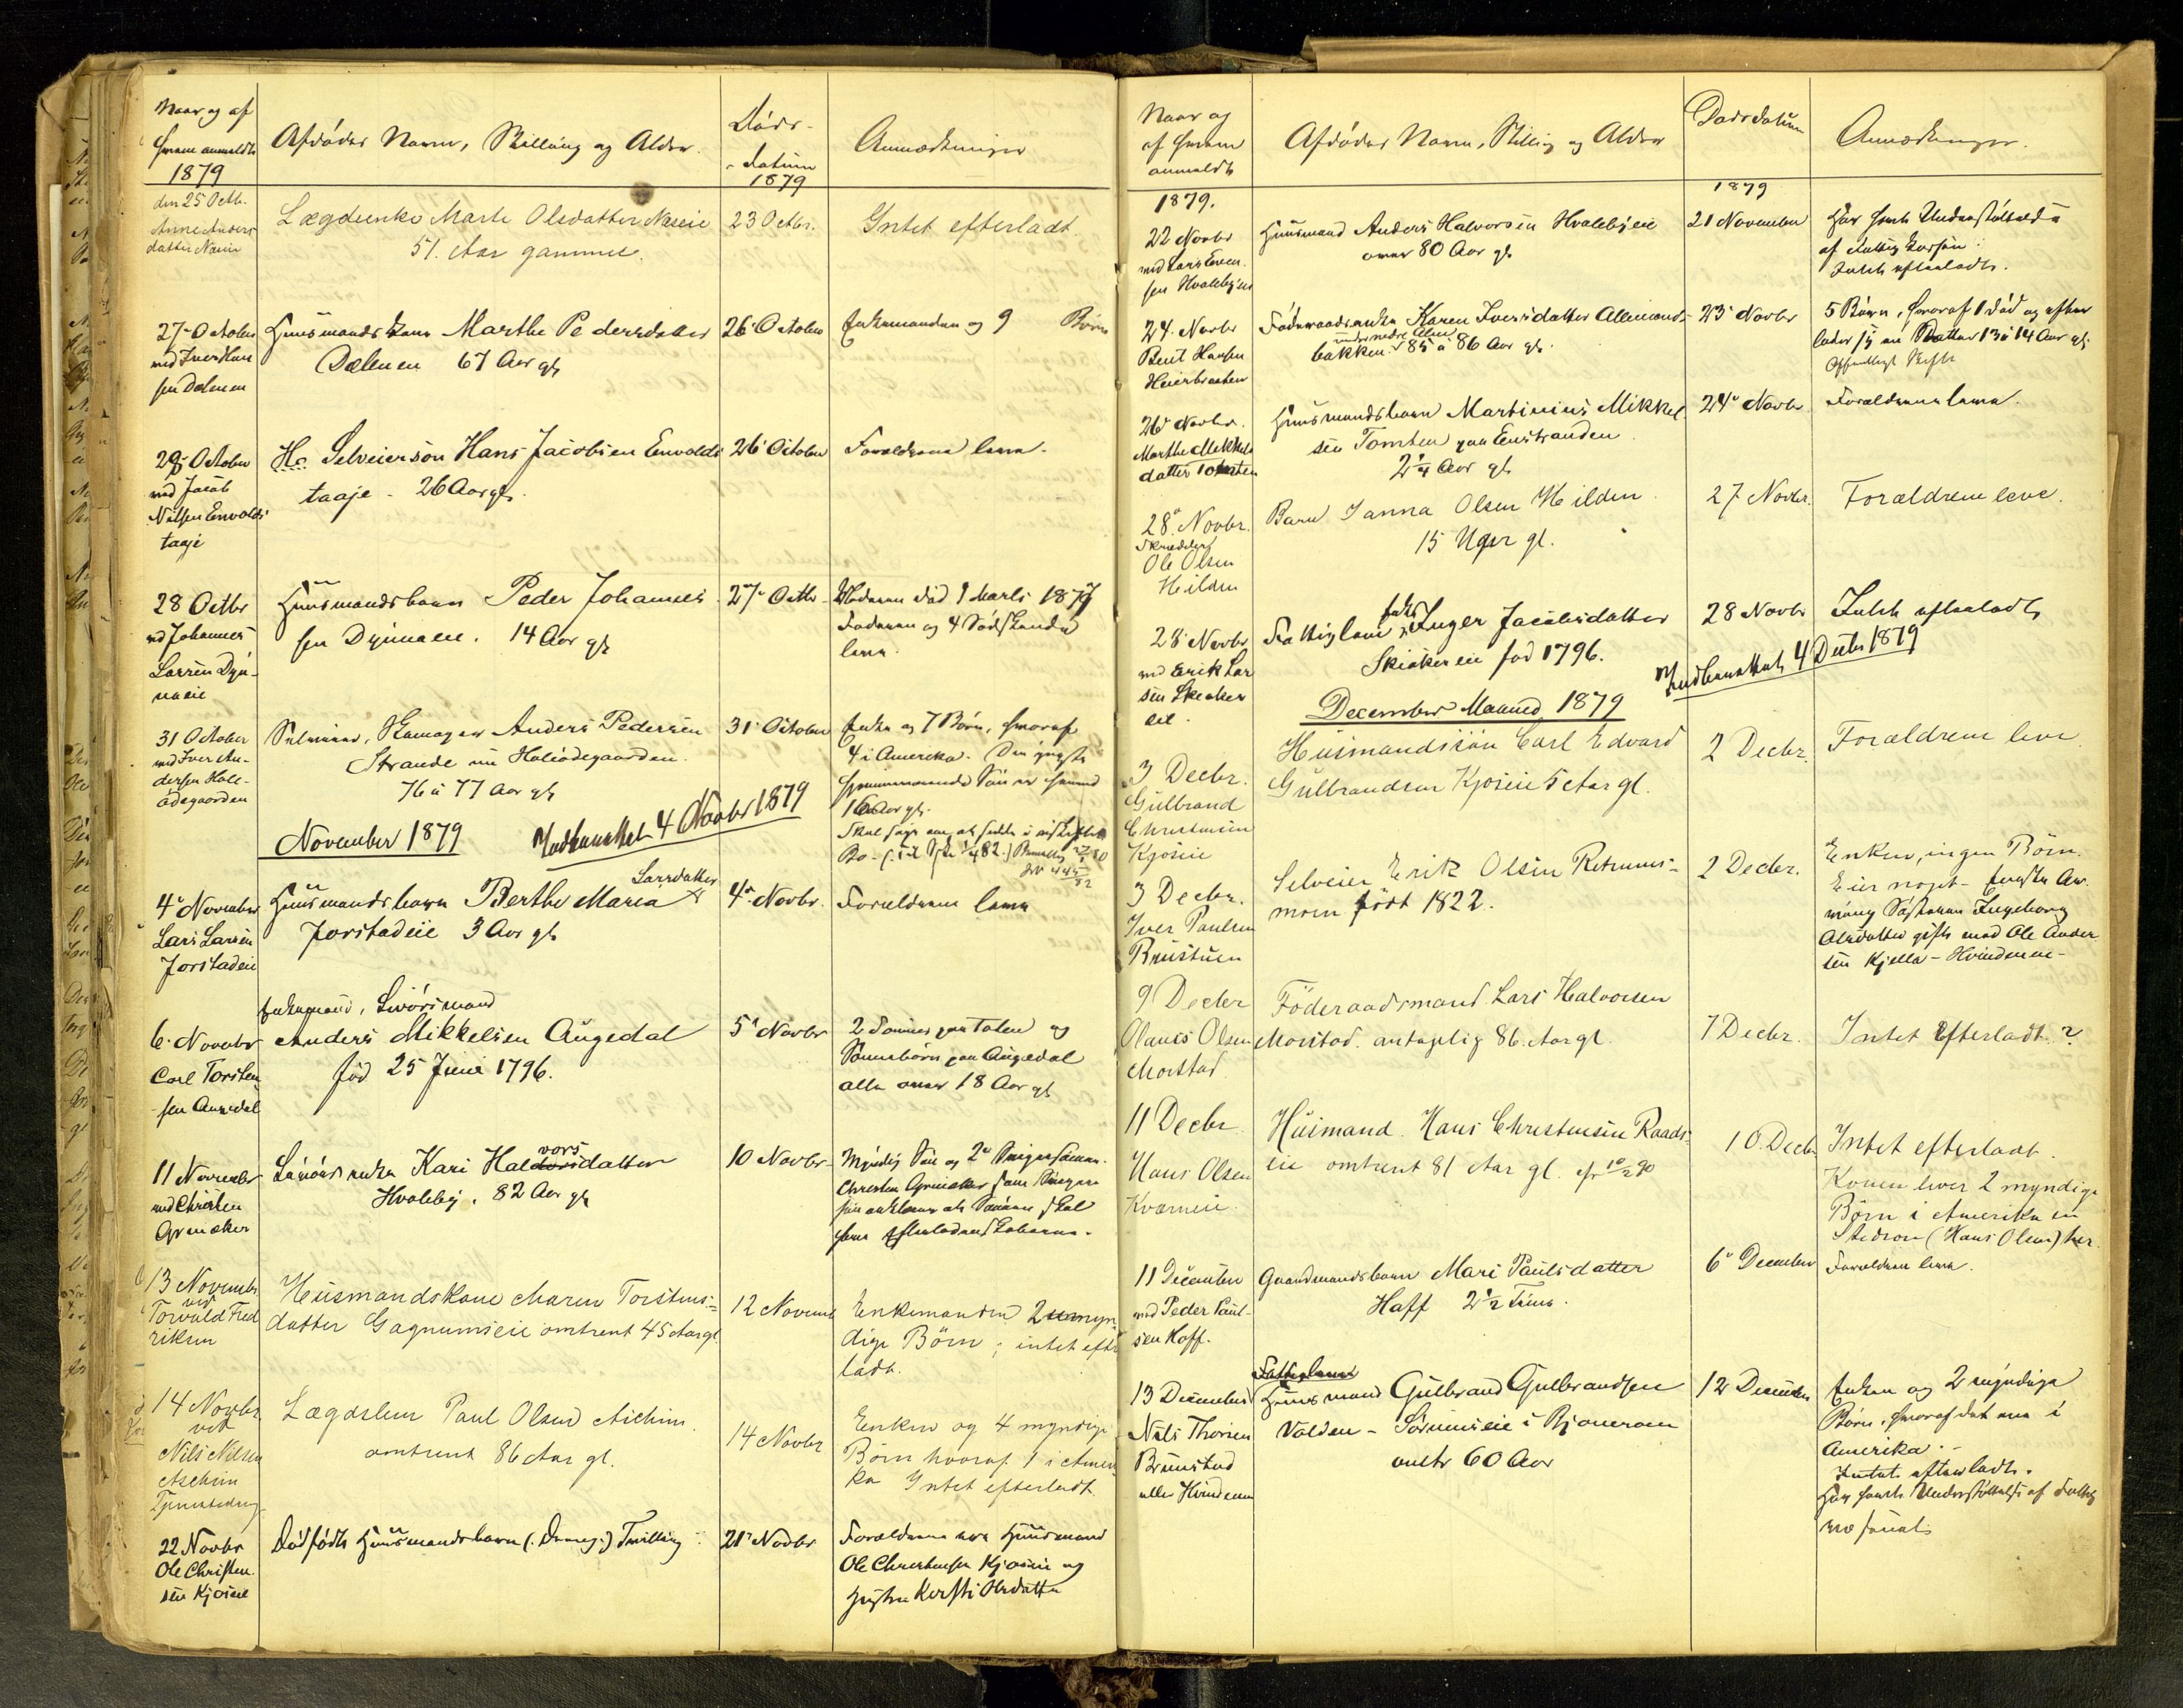 Naar og af
hvem anmeldt
1879
Afdødes Navn, Stilling og Alder.
Døds-
datum
1879
Anmærkninger
den 25 Octb.
Anne Anders
datter Næsie
Lægdeenke Marte Olsdatter Næseie
51. Aar gammel.
23 Octbr.
Intet efterladt
27 October
ved Iver Han
sen Dælenen
Huusmandskone Marthe Pedersdatter
Dælenen 67 Aar gl
26 October
Enkemanden og 9 Børn
28 October
ved Jacob
Nilsen Envolds
taaje
Selveiersøn Hans Jacobsen Envolds
taaje - 26 Aar gl.
26 October
Forældrene leve.
28 Octbr
vd Johannes
Larsen Dyn-
naeie
Huusmandsbarn Peder Johannes
sen Dynnaeie. 14 Aar gl
27 Octbr
Moderen død 9 Marts 1877
Faderen og 4 Sødskende
leve.
31 October
ved Iver An-
dersen Hole-
ødegaarden
Selveier, Skomager Anders Pedersen
Strande nu Holeødegaarden.
76 a 77 Aar gl
31 October
Enke og 7 Børn, hvoraf
4 i Amerika. Den yngste
hjemmeværende Søn er
16 Aar gl.
November 1879
Indberettet 4 Novbr 1879
4 November
Lars Larsen
Jorstadeie
Huusmandsbarn Berthe Maria Larsdatter
Jorstadeie 3 Aar gl
4 Novbr.
Forældrene leve
6 Novbr
Carl Torsten
sen Augedal
Enkemand,
Anders Mikkelsen Augedal
fød 25 Juni 1796.
5 Novbr
2 Sønner paa Toten og
Sønnebørn paa Augedal
alle over 18 Aar gl
11 November
ved Christen
Grineker
Kari Halvorsdatter
Hvaleby. 82 Aar gl
10 Novbr
Myndig Søn og
Christen Grineker som
13 Novembr
ved
Torvald Fred
riksen
Husmandskone Maren Torstens=
datter Gagnumseie omtrent 45 Aar gl.
12 Novemb
Enkemanden 2 myn
dige Børn ; intet efter
ladt.
14 Novbr
ved
Nils Nilsen
Aschim
Lægdslem Paul Olsen Aschim.
omtrent 86 Aar gl.
14 Novbr
Enken og 4 myndige
Børn hvoraf 1 i Ameri
ka Intet efterladt.
22 Novbr
Ole Christen
sen Kjoseie
Dødfødt Huusmandsbarn (: Dreng :) Tvilling
21 Novbr
Forældrene ere Huusmand
Ole Christensen Kjoseie og
Hustru Kersti Olsdatter
Naar og
af hvem
anmeldt
Afdødes Navn, Stilling og Alder
Dødsdatum
Anmærkninger.
1879.
1879
22 Novbr
ved Lars Even
sen Hvalebyeie
Huusmand Anders Halvorsen Hvalebyeie
over 80 Aar gl
21 November
Har havt Understøttelse
af Fattigkassen
Intet efterladt.
24 Novbr
Bent Hansen
Heierbraaten
Føderaadsenke Karen Iversdatter Allemands-
bakken 85 a 86 Aar gl.
23 Novbr
5 Børn, hvoraf 1 død og efter
lader sig en Datter 13 a 14 Aar gl.
Offentligt Skifte
26 Novbr.
Marthe Mikkels
datter Tomten
Huusmandsbarn Martinius Mikkel
sen Tomten paa Eenstranden
2 1/4 Aar gl
24 Novbr
Forældrene leve.
28 Novbr.
Skrædder
Ole Olsen
Hilden
Barn Janna Olsen Hilden
15 Uger gl.
27 Novbr.
Forældrene leve.
28 Novbr
ved Erik Lar
sen Skiaker
eie.
Fattiglem, Enke Inger Jacobsdatter
Skiakereie fød 1796.
28 Novbr
Intet efterladt
Indberettet 4 Decbr 1879
December Maaned 1879
3 Decbr.
Gulbrand
Christensen
Kjoseie
Husmandssøn Carl Edvard
Gulbrandsen Kjoseie 5 Aar gl.
2 Decbr.
Forældrene leve
3 Decbr.
Iver Paulsen
Brustuen
Selveier Erik Olsen Retrums-
moen født 1822.
2 Decbr.
Enken, ingen Børn.
Eier noget - første Ar-
ving Søsteren Ingeborg
Olsdatter gift med Ole Ander
sen Kjella - Hvindeneie -
9 Decbr
Olaus Olsen
Morstad
Føderaadsmand Lars Halvorsen
Morstad. antagelig 86. Aar gl.
7 Decbr.
Intet Efterladt.?
11 Decbr
Hans Olsen
Kværneie
Husmand. Hans Christensen Raads
eie omtrent 81 Aar gl.
10. Decbr
Intet efterladt.
Konen lever 2 myndige
Børn i Amerika en
Stedsøn (Hans Olsen) her.
11 December
ved Peder Paul-
sen Hoff.
Gaardmandsbarn Mari Paulsdatter
Haff 2 1/2 Time.
6 December
Forældrene leve.
13 December
Nils Thorsen
Brunstad
eller Hvindeneie
Fattiglem
Huusmand Gulbrand Gulbrandsen
Volden - Sørumseie i Bjoneroa
omtr 60 Aar
12 December
Enken og 2 myndige
Børn, hvoraf det ene i
Amerika. -
Intet efterladt.
Har havt Understøttelse af Fattig
væsenet